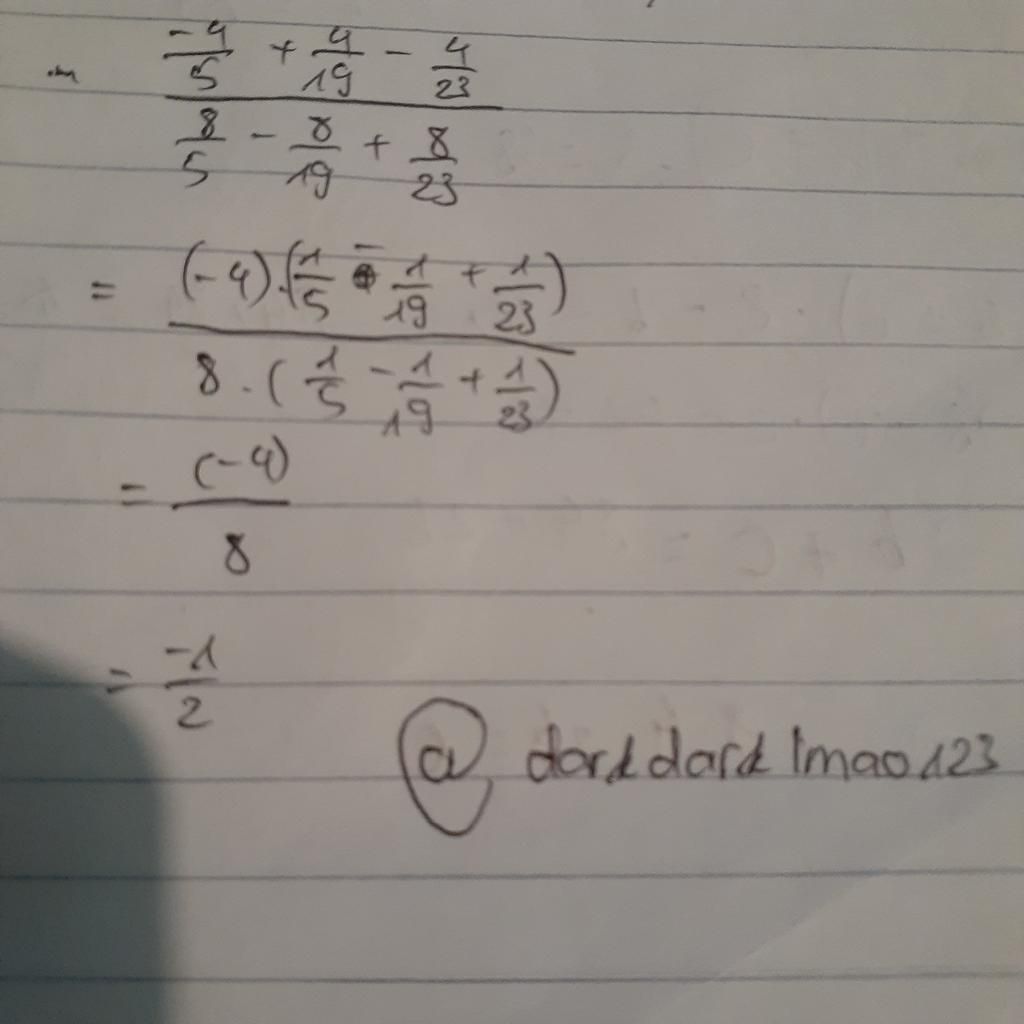 -4/5 + 4/19 - 4/23
8/5 - 8/19 + 8/23
= (-4).(1/5 - 1/19 + 1/23)
8.(1/5 - 1/19 + 1/23)
= (-4)
8
= -1
2
@ dard dard lmao123